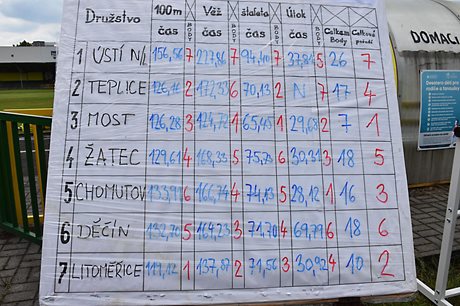 Družstvo 100m čas BODY Věž čas BODY štafeta čas BODY Útok čas BODY Celkem Body Celkové pořadí
1 ÚSTÍ N/L 156,56 7 217,86 7 94,40 7 37,84 5 26 7
2 TEPLICE 126,16 2 172,33 6 70,13 2 N 7 17 4
3 MOST 126,28 3 124,72 1 65,45 1 29,68 2 7 1
4 ŽATEC 129,61 4 168,33 5 75,73 6 30,31 3 18 5
5 CHOMUTOV 133,91 6 166,74 4 74,13 5 28,12 1 16 3
6 DĚČÍN 132,70 5 164,23 3 71,70 4 69,79 6 18 6
7 LITOMĚŘICE 119,12 1 137,87 2 71,56 3 30,92 4 10 2
DOMAC